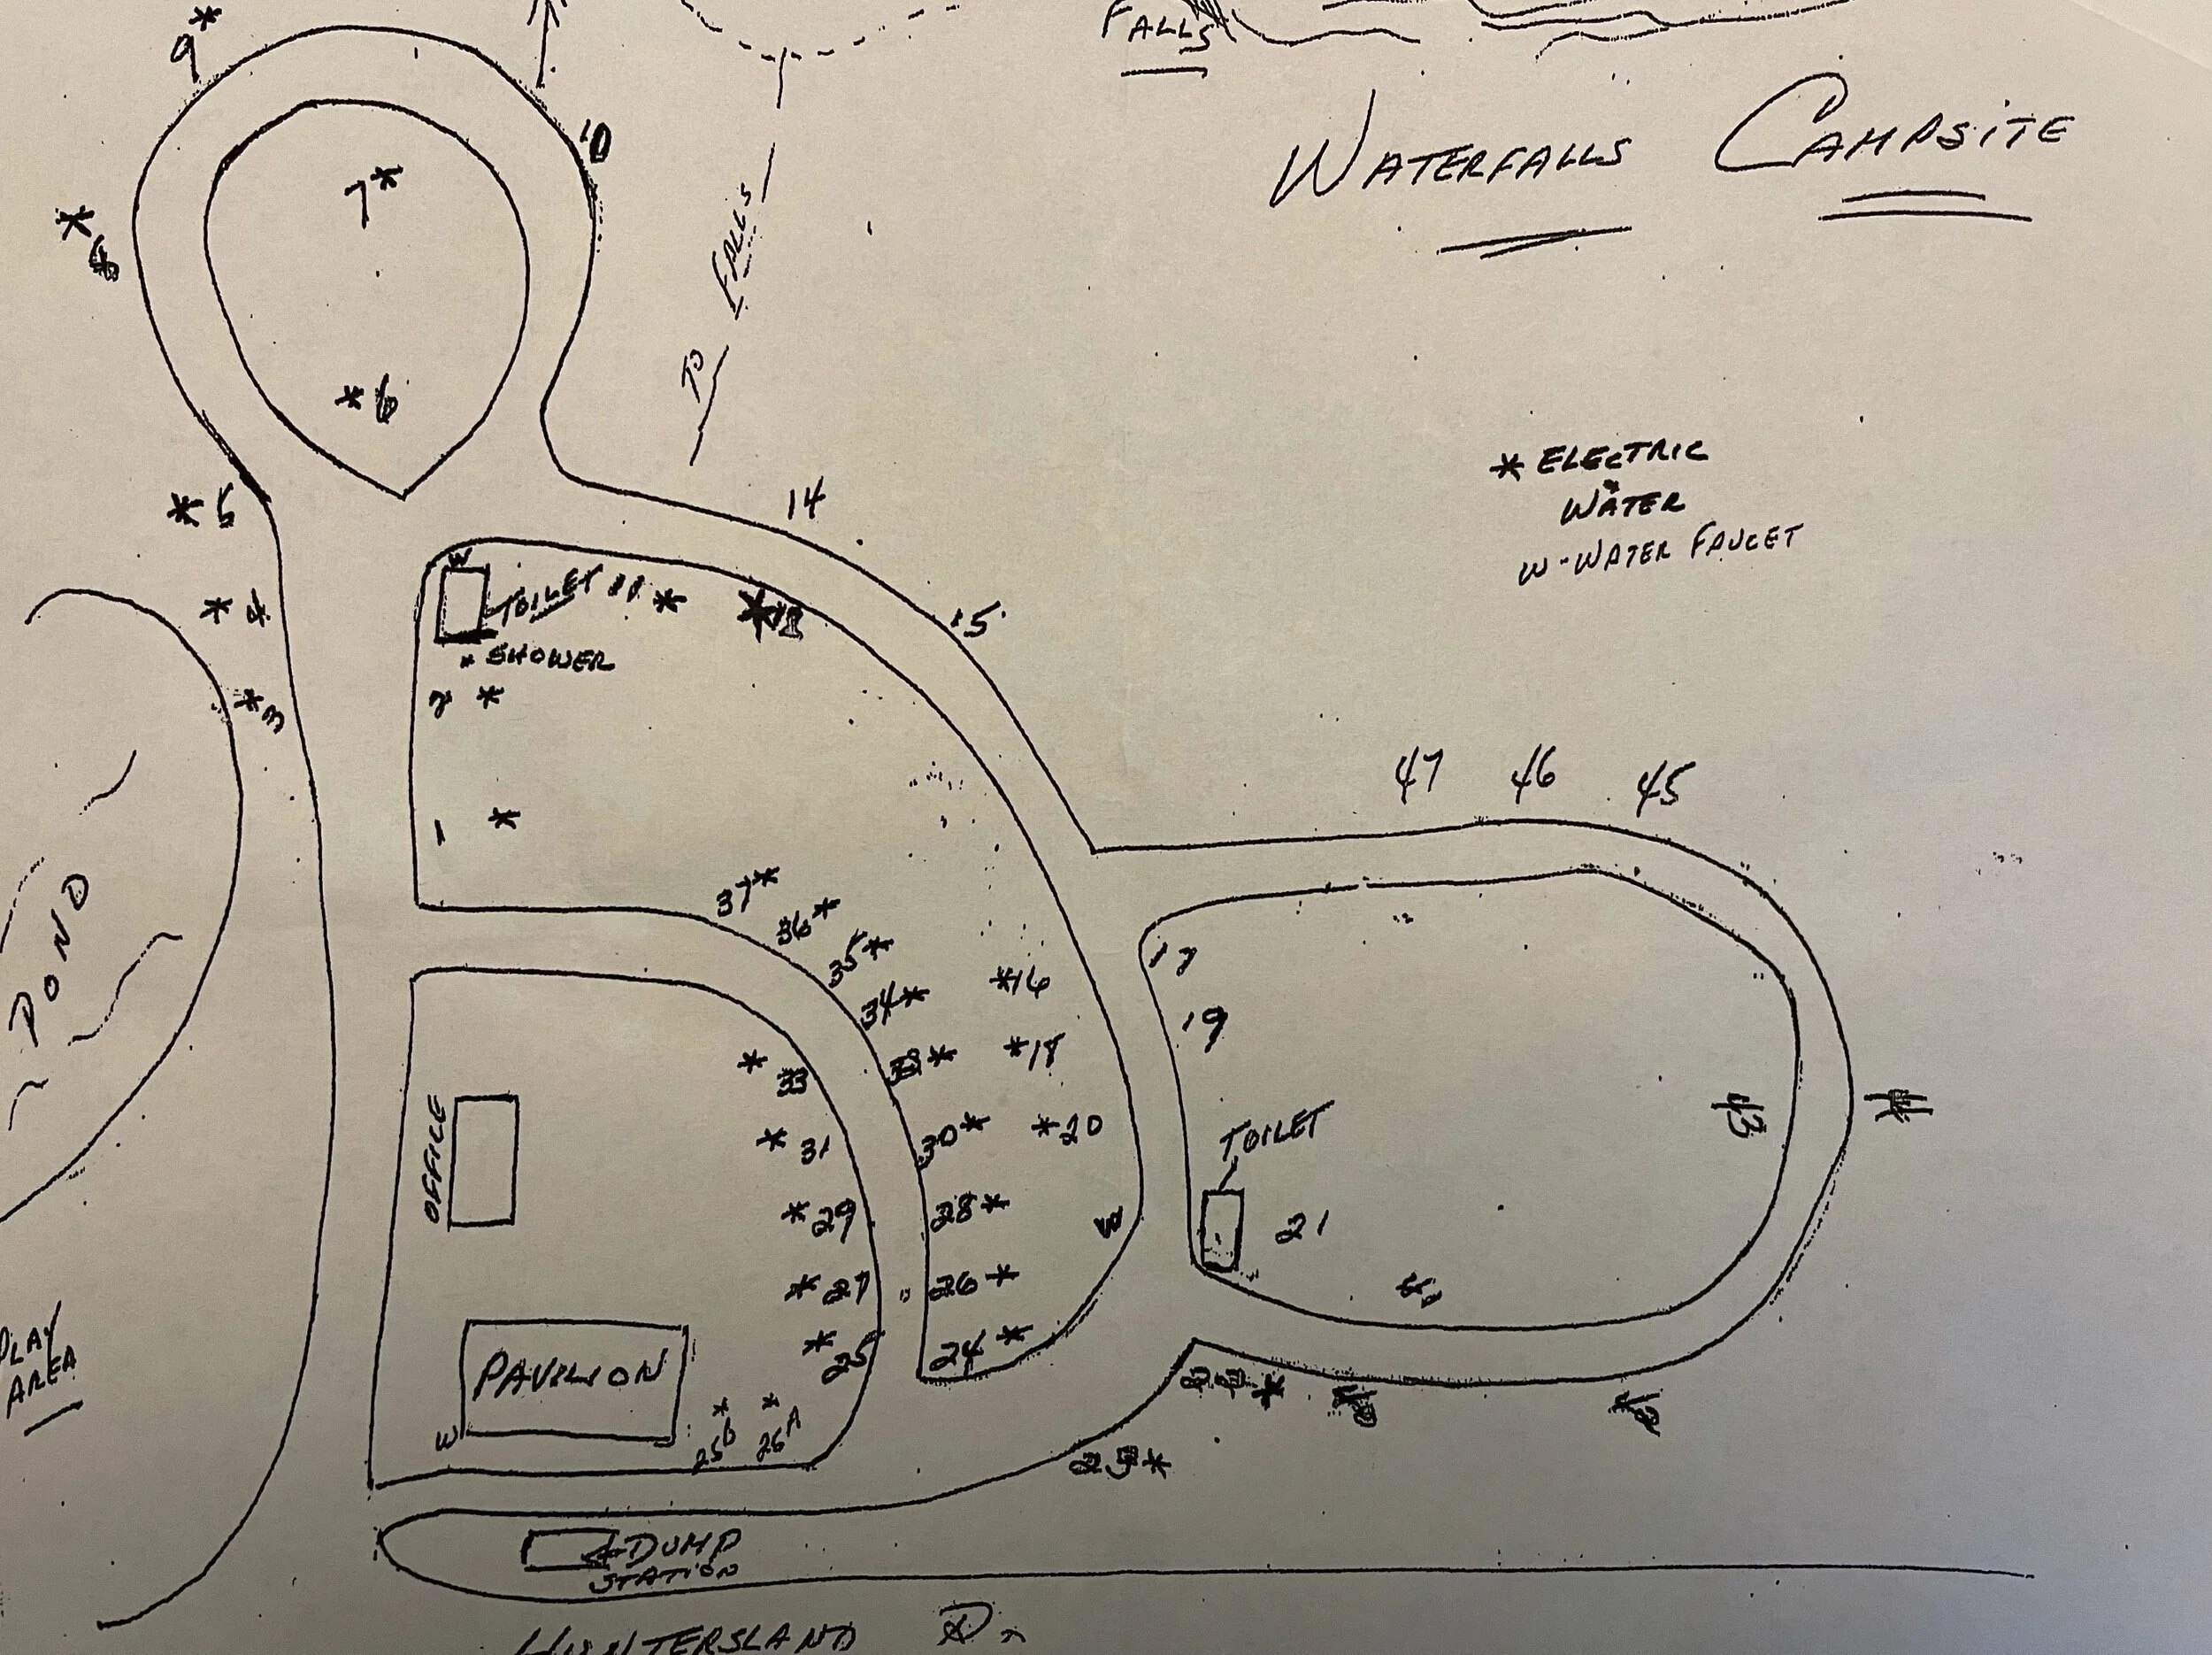 FALLS
WATERFALLS CAMPSITE
9*
10
7*
* 8
*6
TO FALLS
* ELECTRIC
WATER
W-WATER FAUCET
* 5
14
15
W
TOILET 11 *
* 4
SHOWER
*3
2 *
1 *
47 46 45
37*
36*
35*
34*
*16
17
19
*18
POND
* 33
* 31
30*
*20
TOILET
OFFICE
* 29
28*
W
21
* 27
26*
* 25
24*
PAVILION
W
25B
26A
PLAY
AREA
23*
DUMP
STATION
HUNTERSLAND